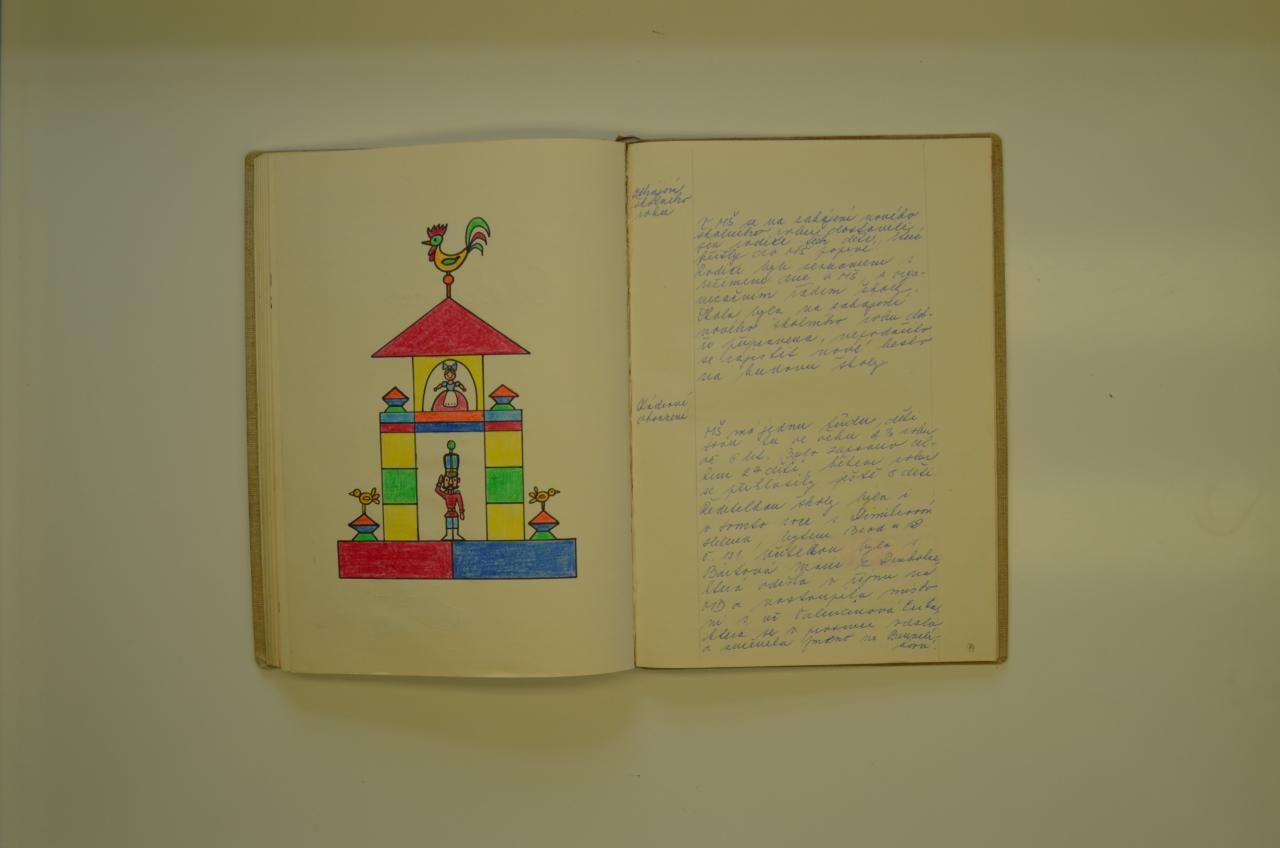 Zahájení
školního
roku
V MŠ se na zahájení nového
školního roku dostavili
jen rodiče těch dětí, které
přišly do MŠ poprvé.
Rodiče byli seznámeni s
režimem dne v MŠ, s orga-
nizačním řádem školy.
Škola byla na zahájení
nového školního roku dob-
ře připravena, nepodařilo
se zajistit nové heslo
na budovu školy
Kádrové
obsazení
MŠ má jednu třídu, děti
jsou tu ve věku od 3 roků
do 6 let. Bylo zapsáno cel-
kem dětí, během roku
se přihlásily ještě děti.
Ředitelkou školy byla i
v tomto roce s.
Helena, bytem Brod n D.
č. 131. Učitelkou byla s.
Bártová z
která odešla v říjnu na
MD a nastoupila místo
ní s. uč. Valentinová
která se v prosinci vdala
a změnila jméno na